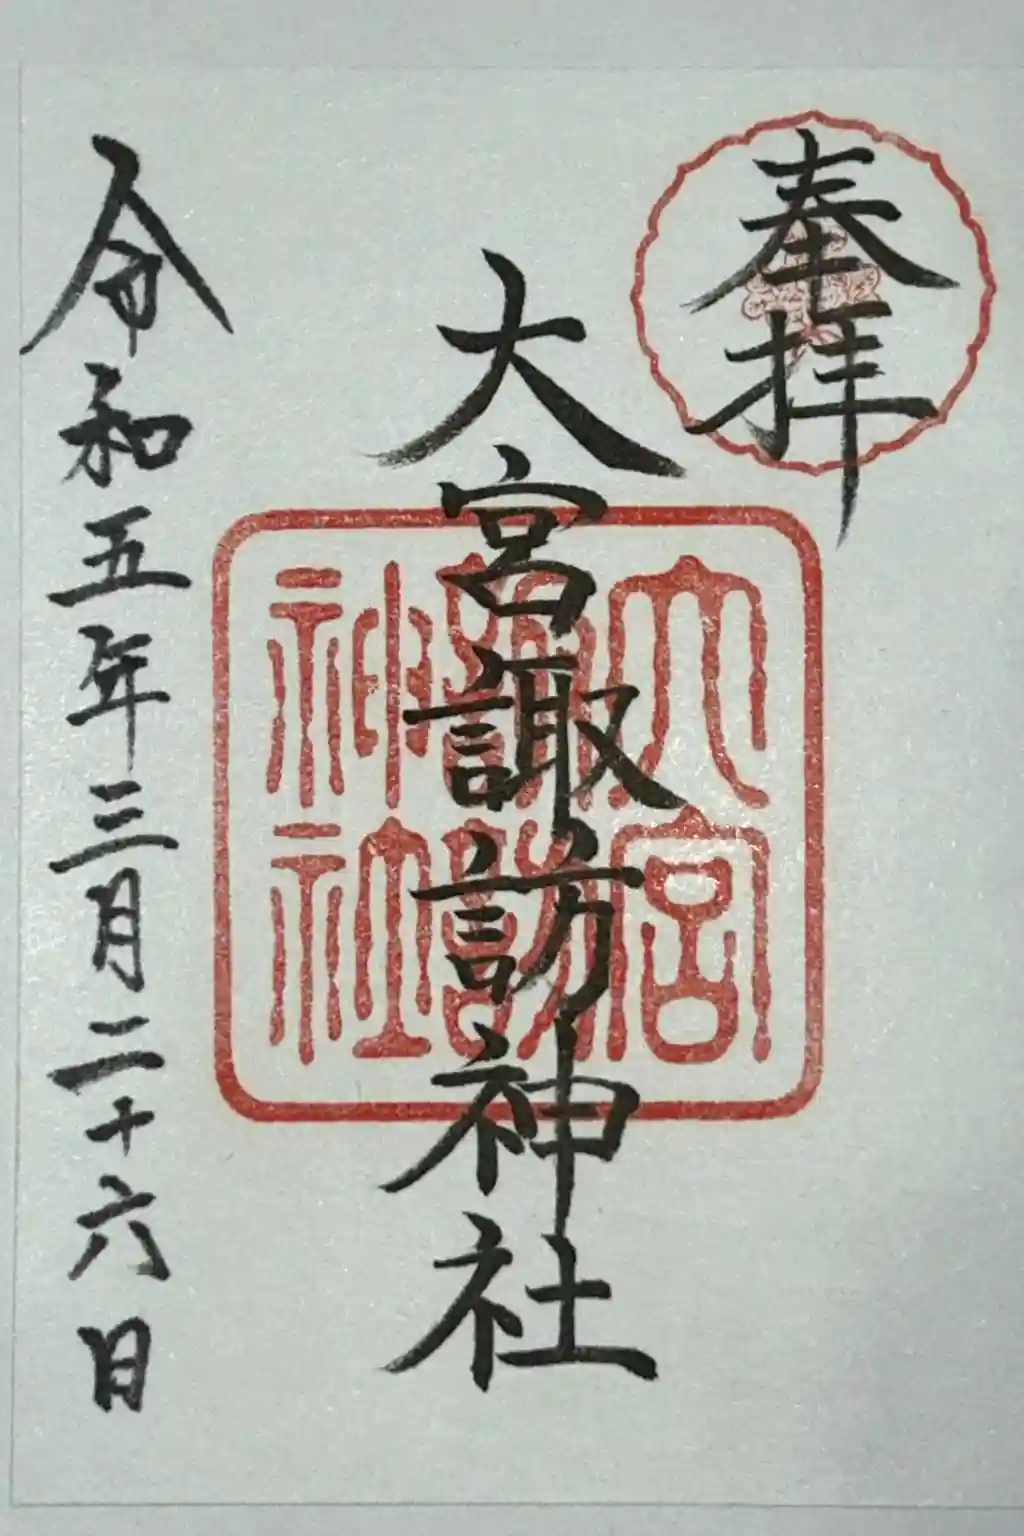 奉拝
大宮諏訪神社
大宮
諏訪
神社
令和五年三月二十六日